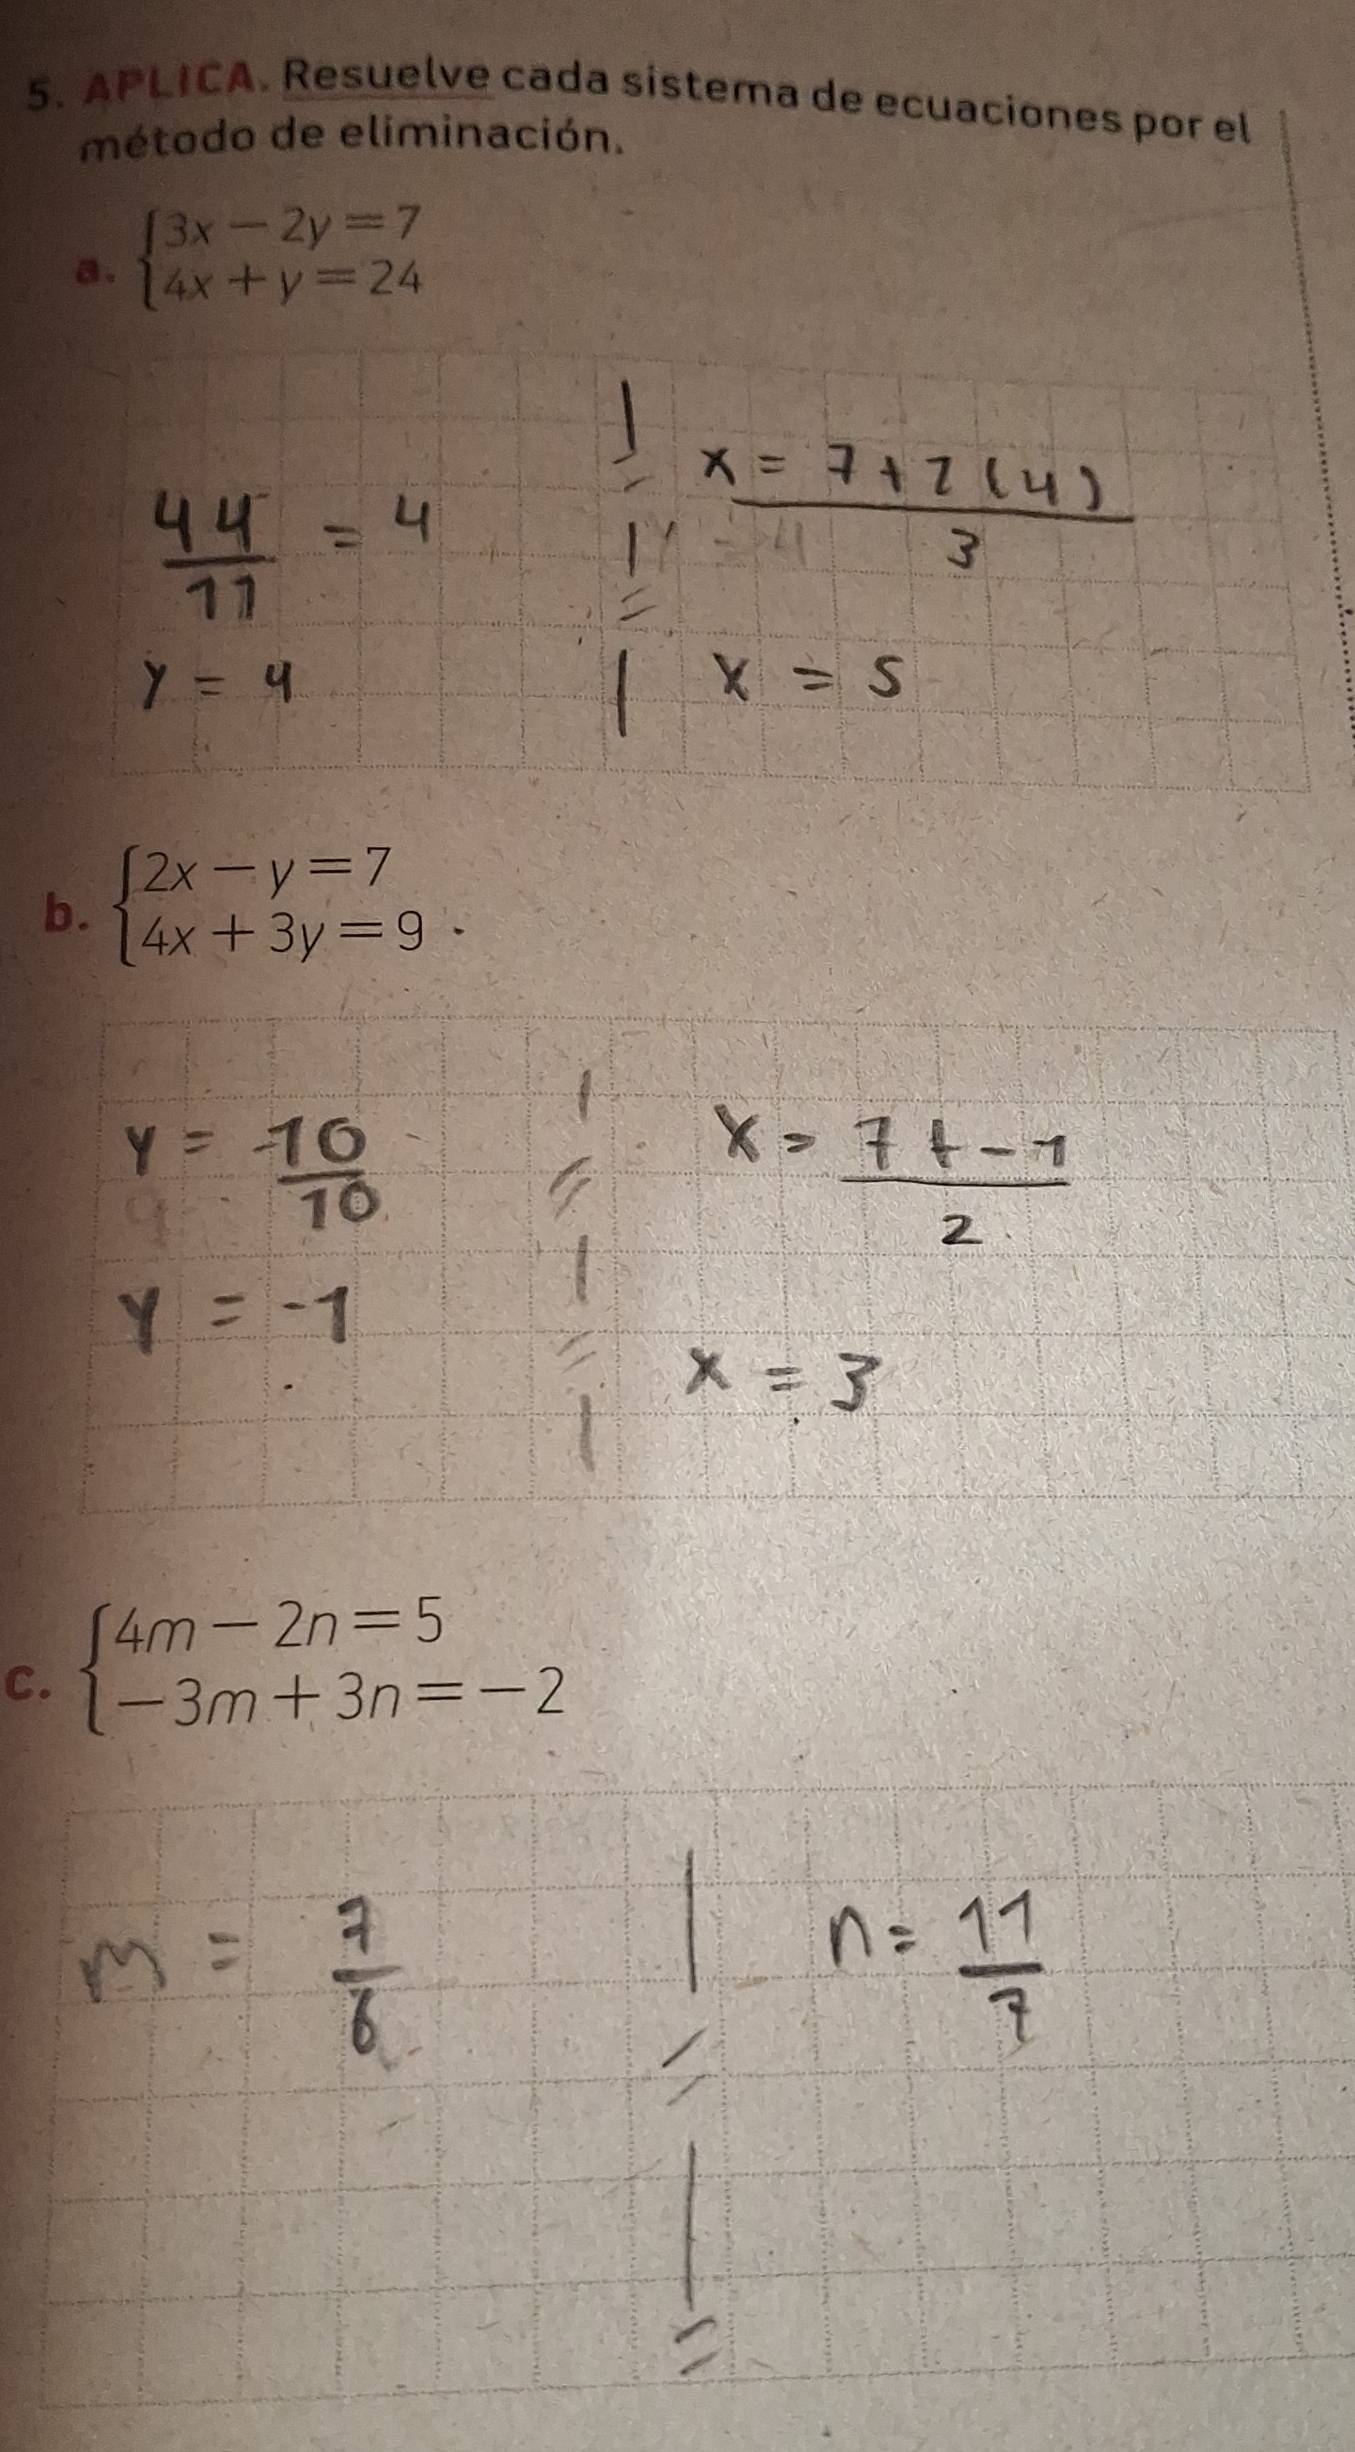 5. APLICA. Resuelve cada sistema de ecuaciones por el
método de eliminación.
a. {3x − 2y = 7
4x + y = 24
44/11 = 4
y = 4
x = 7 + 2(4) / 3
x = 5
b. {2x − y = 7
4x + 3y = 9
y = -10/10
y = -1
x = 7 + -1 / 2
x = 3
c. {4m − 2n = 5
−3m + 3n = −2
m = 7/6
n = 11/7